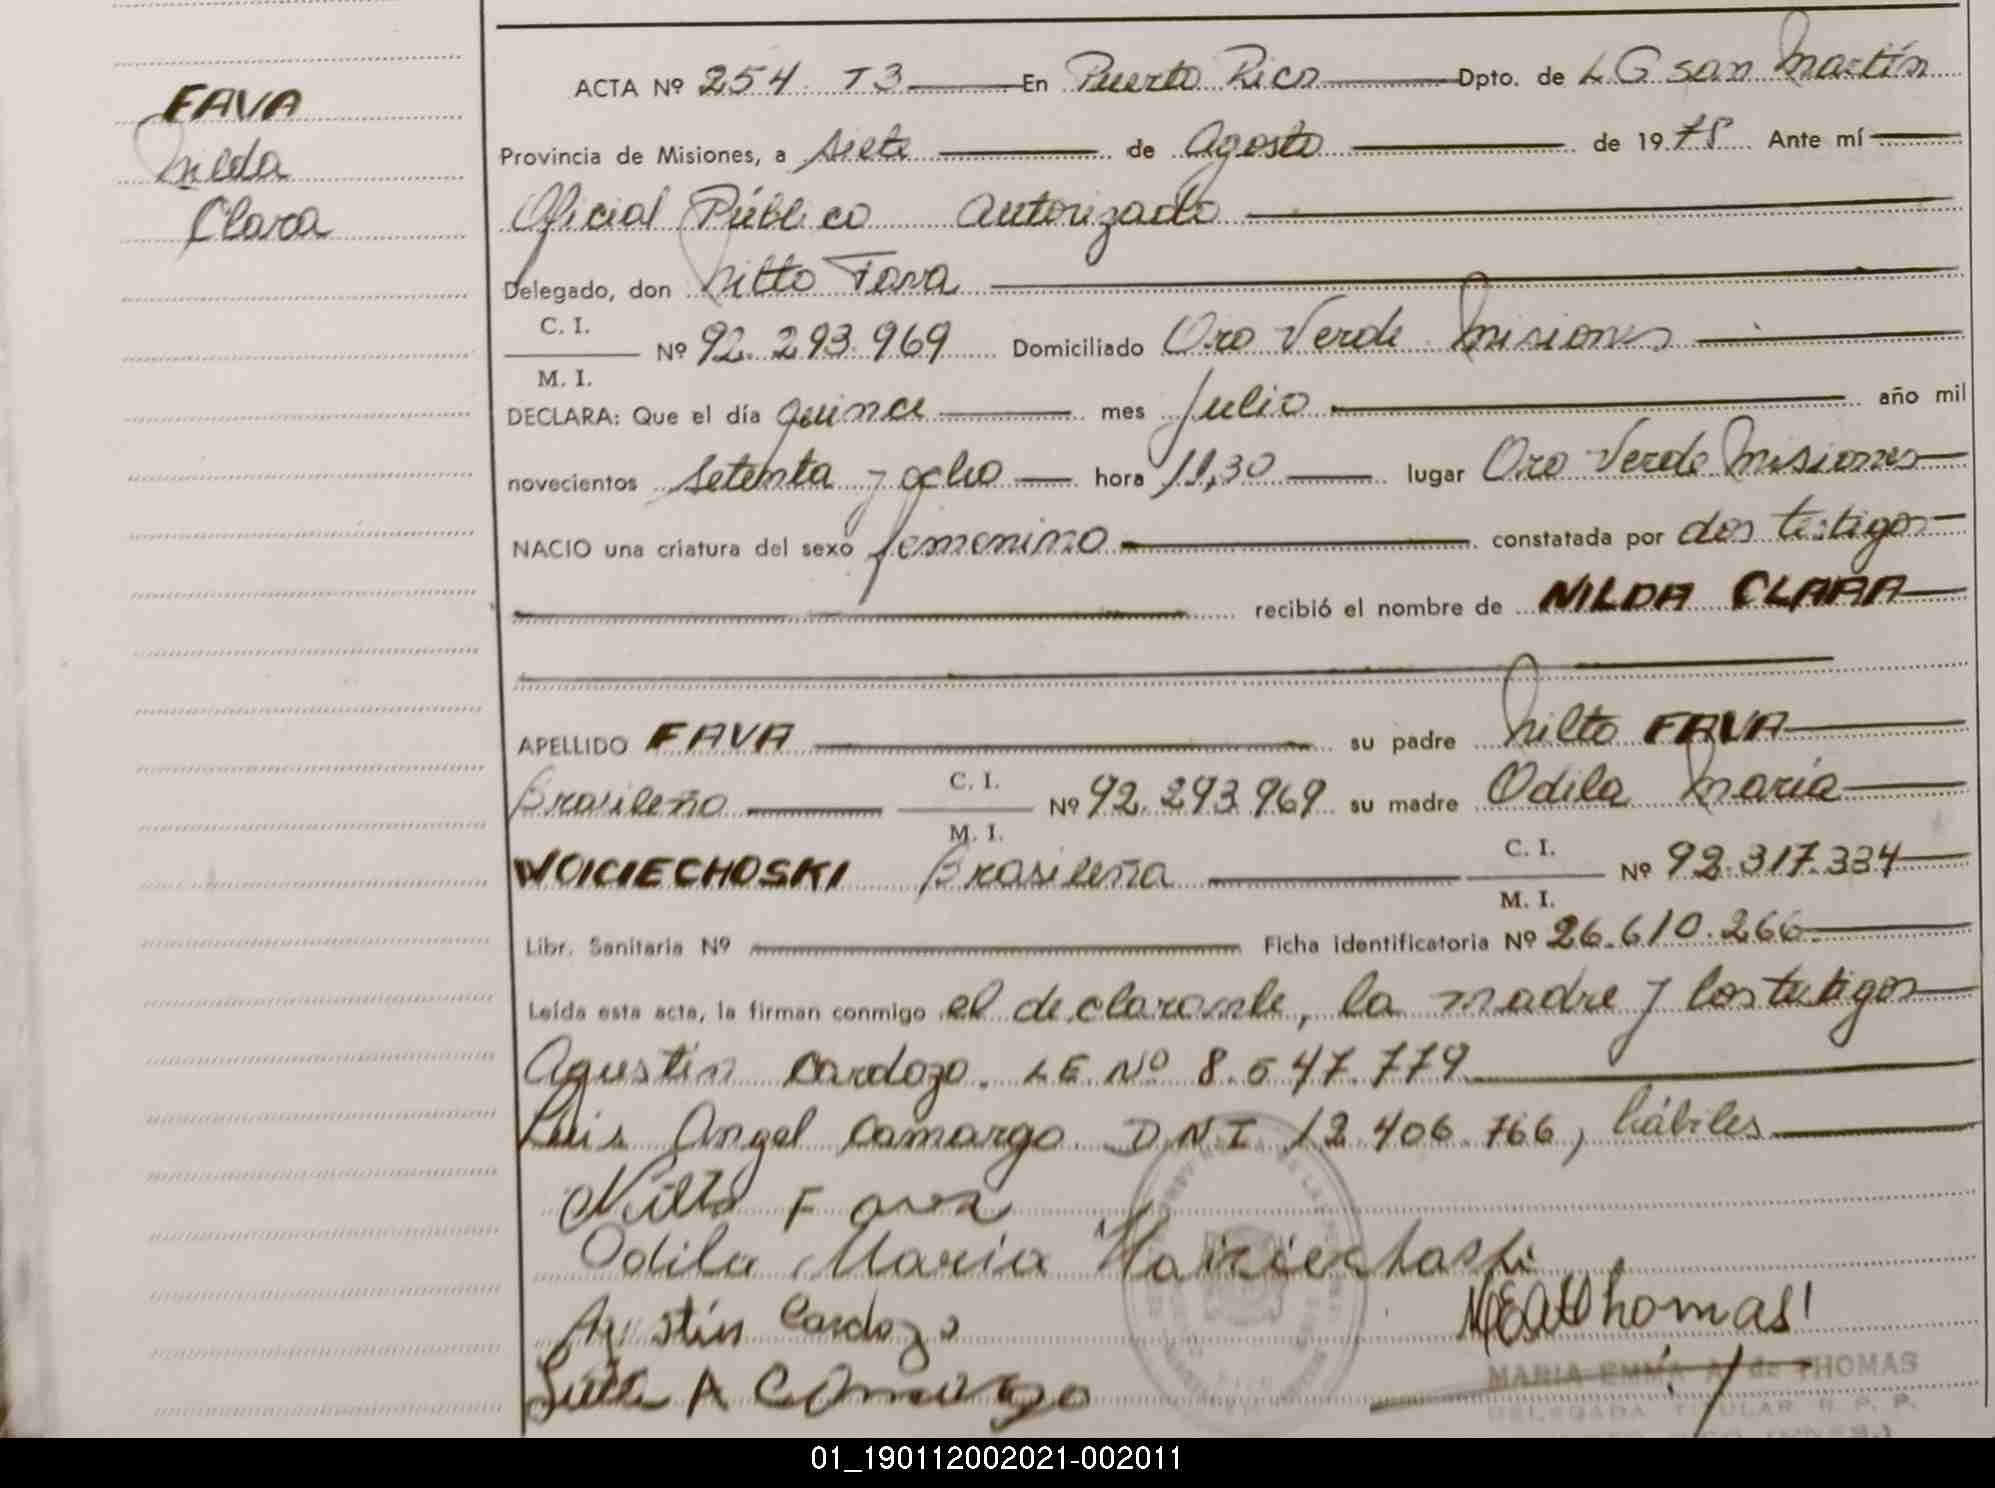 FAVA
Nilda
Clara
ACTA Nº 254 T3 En Puerto Rico Dpto. de L G San Martín
Provincia de Misiones, a siete de Agosto de 1978 Ante mí
Oficial Público Autorizado
Delegado, don Nilto Fava
C. I.
M. I.
Nº 92.293.969 Domiciliado Oro Verde Misiones
DECLARA: Que el día quince mes Julio año mil
novecientos setenta y ocho hora 11,30 lugar Oro Verde Misiones
NACIO una criatura del sexo femenino constatada por dos testigos
recibió el nombre de NILDA CLARA
APELLIDO FAVA su padre Nilto FAVA
Brasileño C. I. M. I. Nº 92.293.969 su madre Odila María
WOICIECHOSKI Brasileña C. I. M. I. Nº 92.317.334
Libr. Sanitaria Nº Ficha identificatoria Nº 26.610.266
Leída esta acta, la firman conmigo el declarante, la madre y los testigos
Agustín Cardozo. LE Nº 8.547.779
Luis Angel Camargo DNI 12 406 766, hábiles
Nilto Fava
Odila Maria Woiciechoski
Agustín Cardozo
Luis A Camargo
Thomas
MARIA EMMA A. de THOMAS
DELEGADA TITULAR R. P. P.
01_190112002021-002011